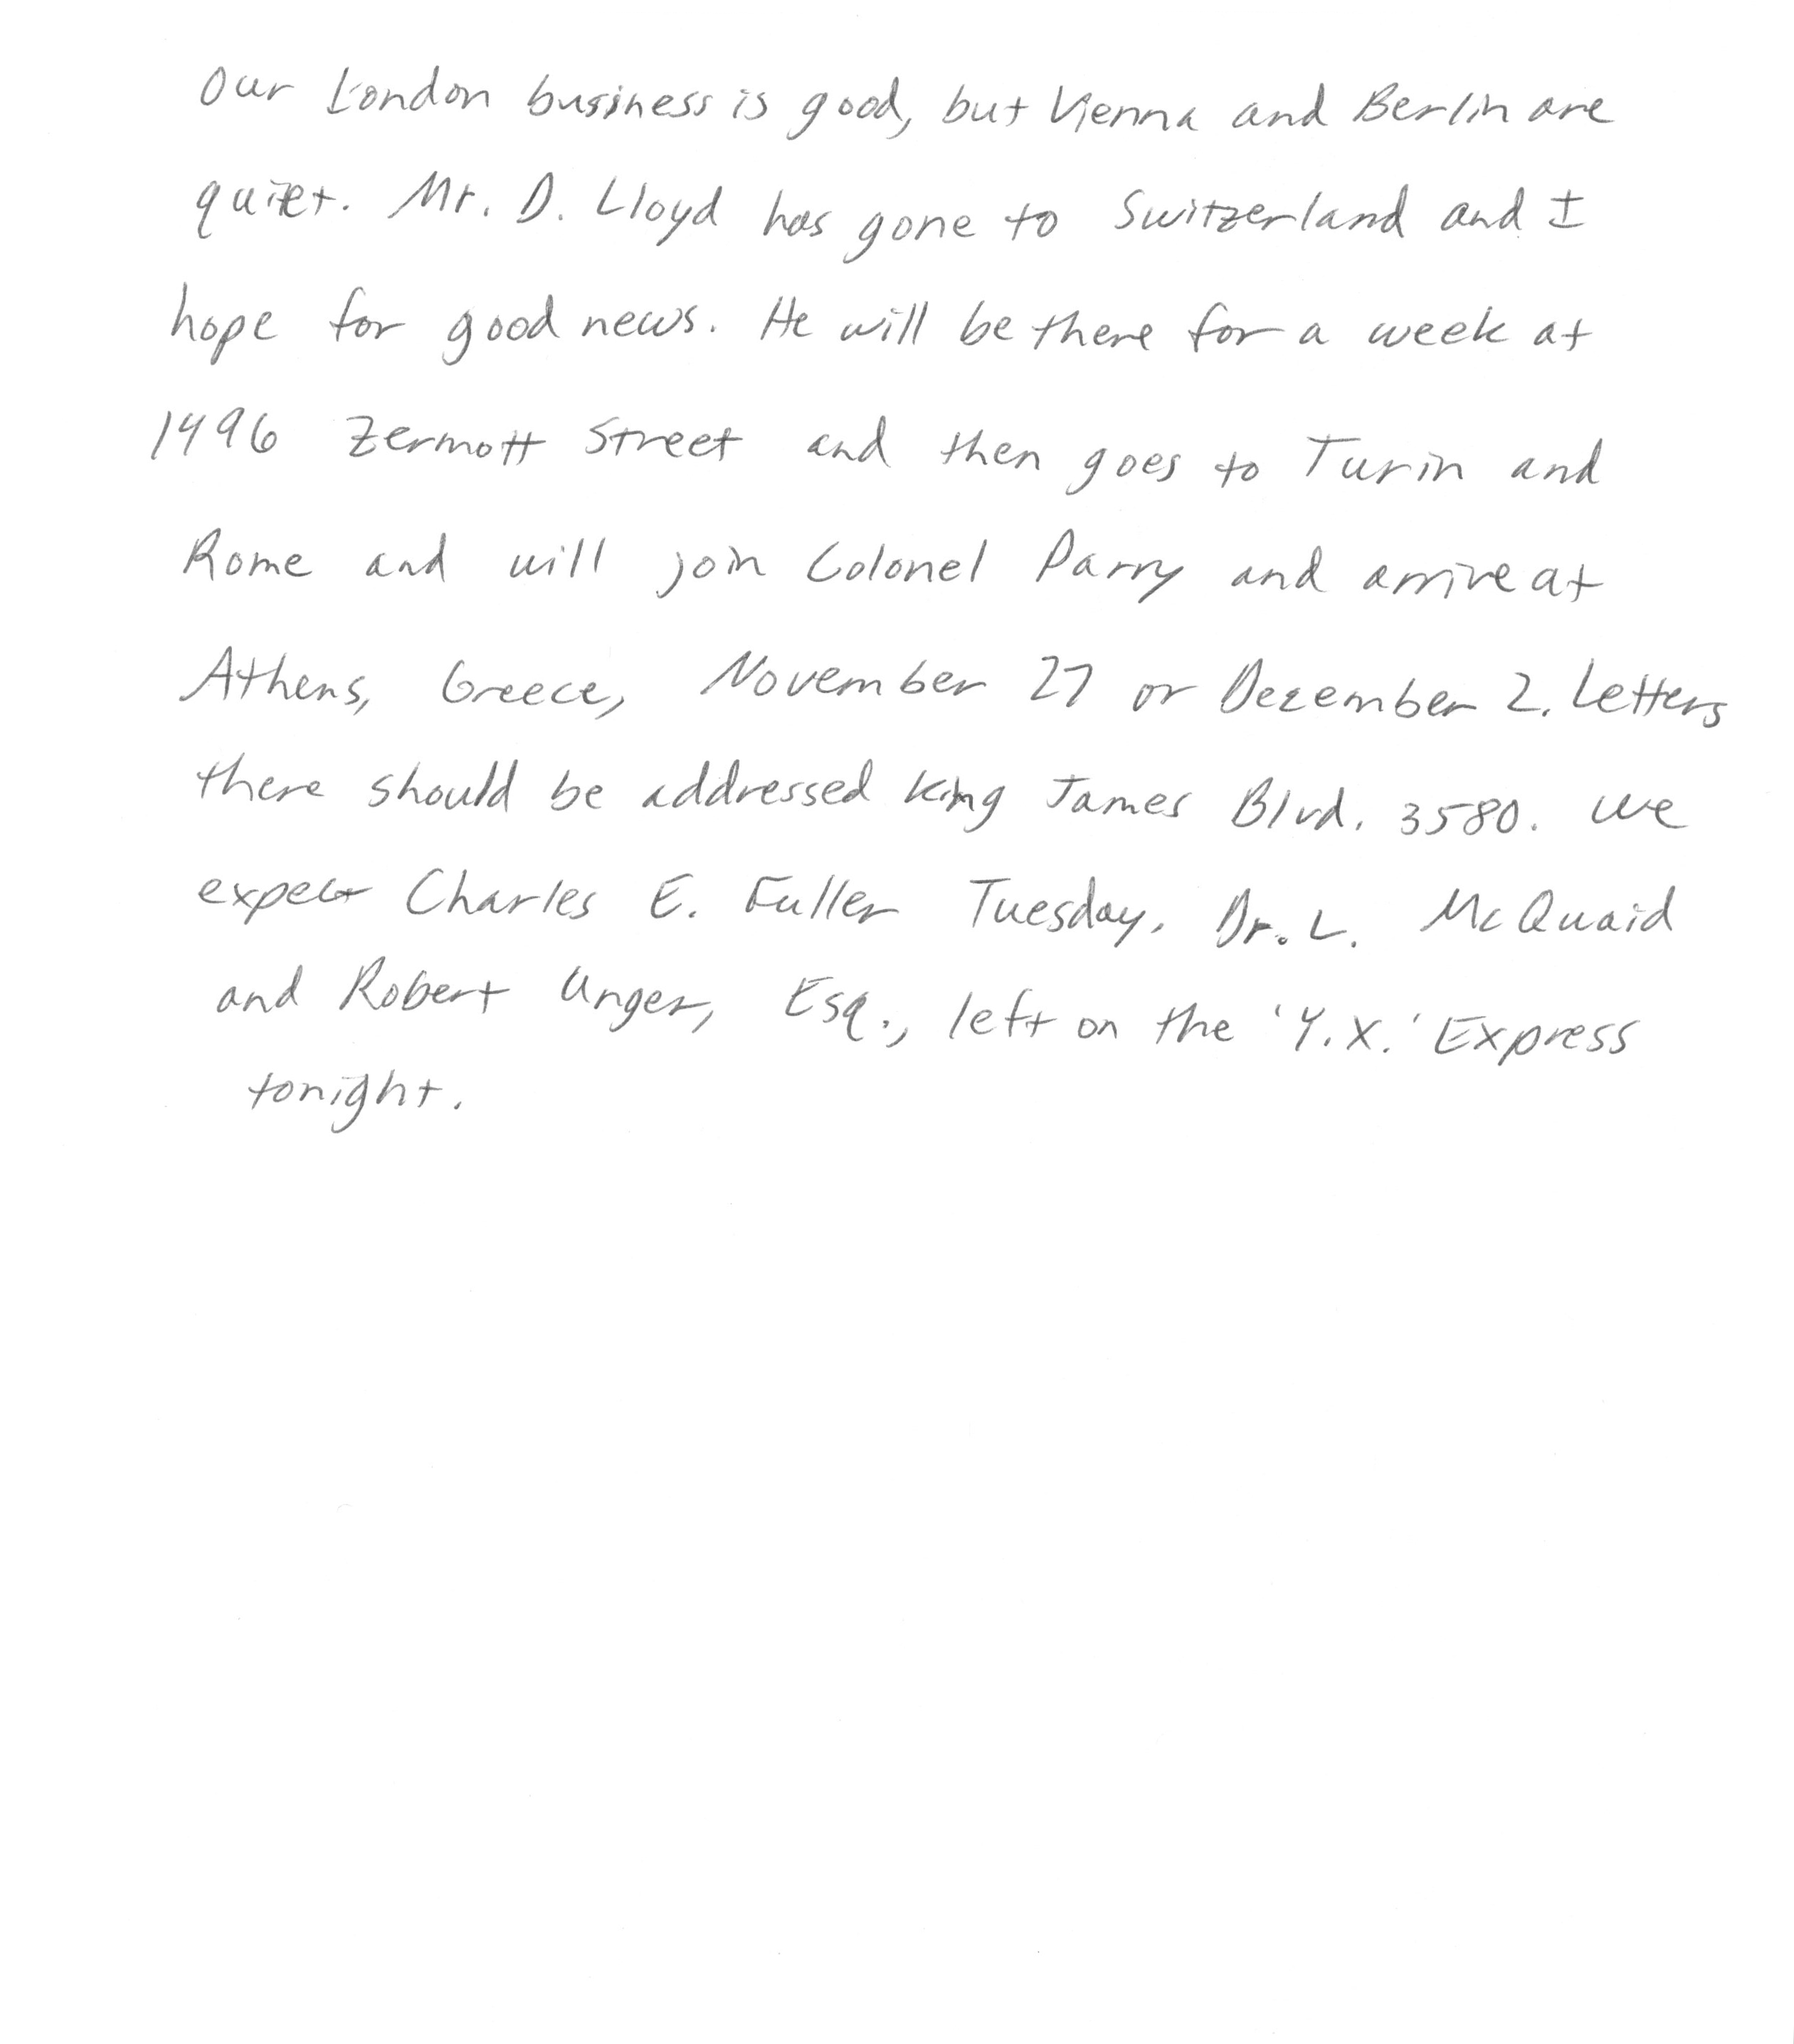 Our London business is good, but Vienna and Berlin are
quiet. Mr. D. Lloyd has gone to Switzerland and I
hope for good news. He will be there for a week at
1496 Zermott Street and then goes to Turin and
Rome and will join Colonel Parry and arrive at
Athens, Greece, November 27 or December 2. Letters
there should be addressed King James Blvd. 3580. We
expect Charles E. Fuller Tuesday, Dr. L. McQuaid
and Robert Unger, Esq., left on the 'Y.X.' Express
tonight.